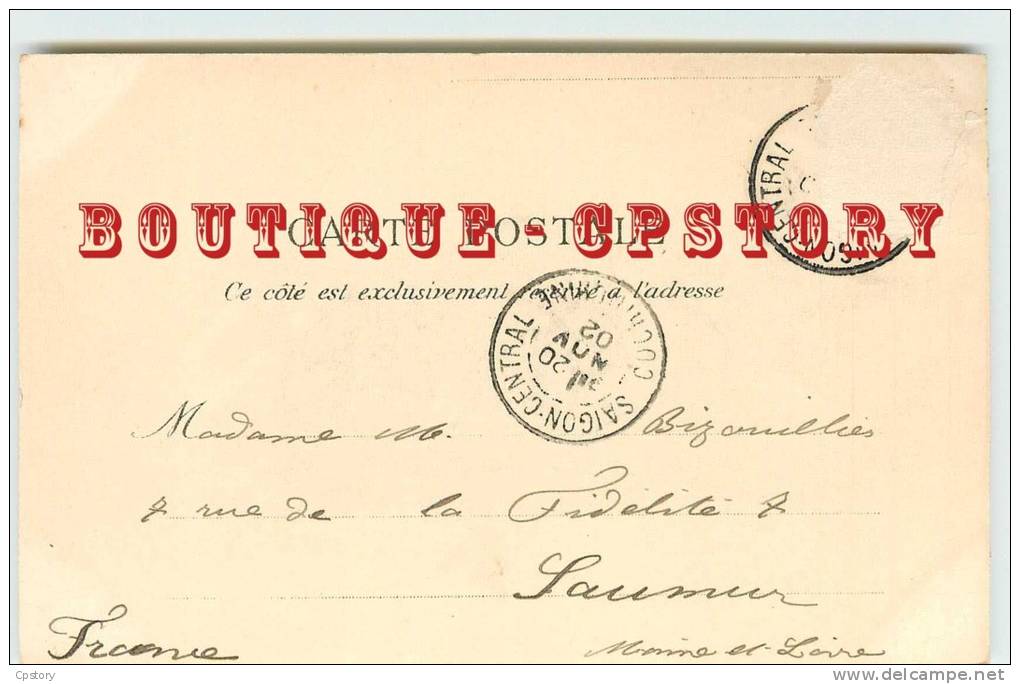 BOUTIQUE - CPSTORY
CARTE POSTALE
Ce côté est exclusivement réservé à l'adresse
SAIGON-CENTRAL
COCHINCHINE
20
NOV
02
Madame M. Bizouillier
7 rue de la Fidélité 7
Saumur
France
Maine et Loire
Cpstory
www.delcampe.net